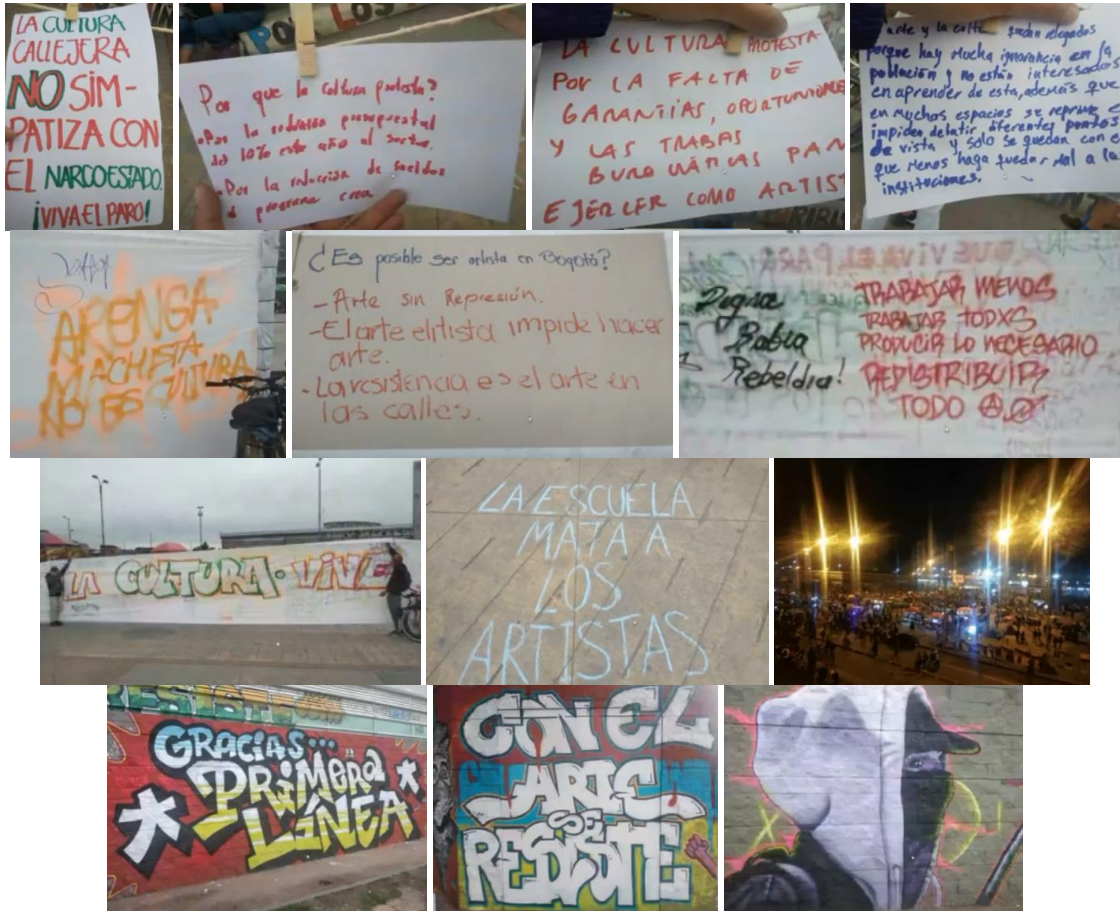 LA CULTURA
CALLEJERA
NO SIM-
PATIZA CON
EL NARCOESTADO.
¡VIVA EL PARO!
Por que la cultura protesta?
-Por la reducción presupuestal
del 10% este año al sector.
-Por la reducción de sueldos
programa crea
LA CULTURA PROTESTA
POR LA FALTA DE
GARANTIAS, OPORTUNIDADE
Y LAS TRABAS
BUROCRÁTICAS PARA
EJERCER COMO ARTIST
arte y la cultu quedan relegados
porque hay mucha ignorancia en la
población y no están interesados
en aprender de esta, además que
en muchos espacios se reprime e
impiden debatir, diferentes puntos
de vista y solo se quedan con e
que menos haga quedar mal a la
instituciones.
ARENGA
MACHISTA
NO ES CULTURA
¿Es posible ser artista en Bogotá?
- Arte sin Represión.
- El arte elitista impide hacer
arte.
- La resistencia es el arte en
las calles.
QUE VIVA EL PARO
Digna
Rabia
Rebeldia!
TRABAJAR MENOS
TRABAJAR TODXS
PRODUCIR LO NECESARIO
REDISTRIBUIR
TODO
LA CULTURA · VIVE
LA ESCUELA
MATA A
LOS
ARTISTAS
RESISTE
GRACIAS...
PRIMERA
LÍNEA
CON EL
ARTE
SE
RESISTE